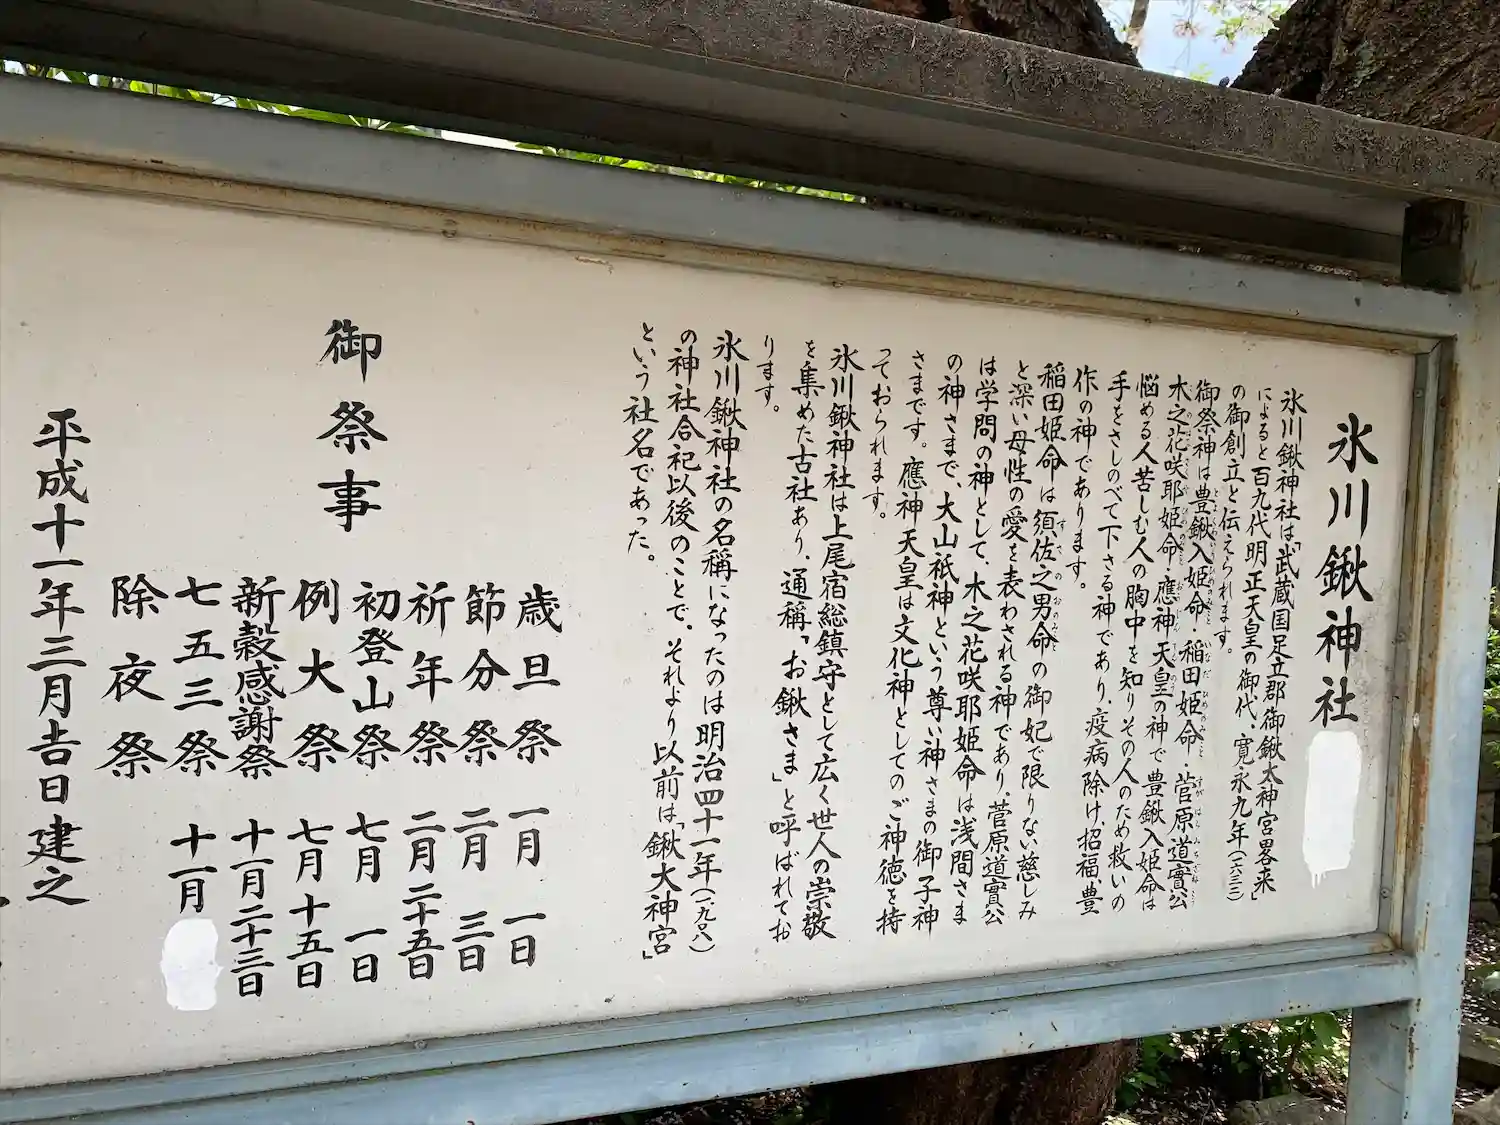 氷川鍬神社
氷川鍬神社は「武蔵国足立郡御鍬太神宮畧来」
によると百九代明正天皇の御代、寛永九年(一六三二)
の御創立と伝えられます。
御祭神は豊鍬入姫命・稲田姫命・菅原道實公
木之花咲耶姫命・應神天皇の神で豊鍬入姫命は
悩める人苦しむ人の胸中を知りその人のため救いの
手をさしのべて下さる神であり、疫病除け、招福、豊
作の神であります。
稲田姫命は須佐之男命の御妃で限りない慈しみ
と深い母性の愛を表わされる神であり、菅原道實公
は学問の神として、木之花咲耶姫命は浅間さま
の神さまで、大山祇神という尊い神さまの御子神
さまです。應神天皇は文化神としてのご神徳を持
っておられます。
氷川鍬神社は上尾宿総鎮守として広く世人の崇敬
を集めた古社あり、通稱「お鍬さま」と呼ばれてお
ります。
氷川鍬神社の名稱になったのは明治四十一年(一九〇八)
の神社合祀以後のことで、それより以前は「鍬大神宮」
という社名であった。
御祭事
歳旦祭 一月一日
節分祭 二月三日
祈年祭 二月二十五日
初登山祭 七月一日
例大祭 七月十五日
新穀感謝祭 十一月二十三日
七五三祭 十一月
除夜祭
平成十一年三月吉日建之